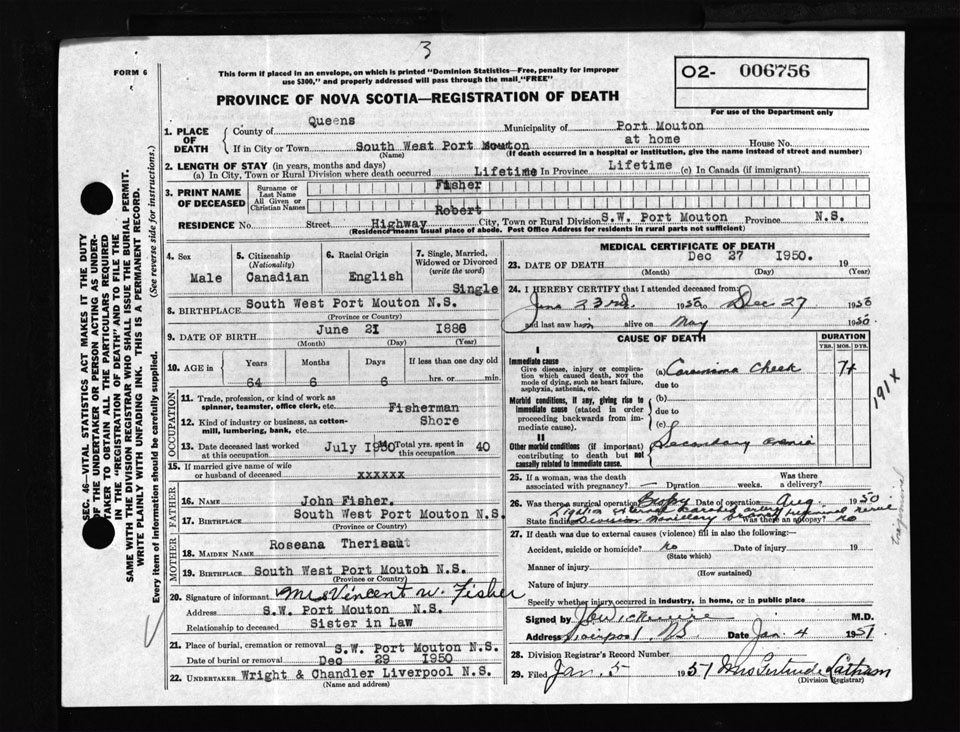 3
FORM 6
This form if placed in an envelope, on which is printed "Dominion Statistics—Free, penalty for improper
use $300," and properly addressed will pass through the mail, "FREE"
O2- 006756
For use of the Department only
PROVINCE OF NOVA SCOTIA—REGISTRATION OF DEATH
SEC. 46—VITAL STATISTICS ACT MAKES IT THE DUTY
OF THE UNDERTAKER OR PERSON ACTING AS UNDER-
TAKER TO OBTAIN ALL THE PARTICULARS REQUIRED
IN THE "REGISTRATION OF DEATH" AND TO FILE THE
SAME WITH THE DIVISION REGISTRAR WHO SHALL ISSUE THE BURIAL PERMIT.
WRITE PLAINLY WITH UNFADING INK. THIS IS A PERMANENT RECORD.
Every item of information should be carefully supplied. (See reverse side for instructions.)
1. PLACE OF DEATH County of Queens Municipality of Port Mouton
If in City or Town South West Port Mouton at home House No.
(Name) (If death occurred in a hospital or institution, give the name instead of street and number)
2. LENGTH OF STAY (in years, months and days)
(a) In City, Town or Rural Division where death occurred Lifetime In Province Lifetime (c) In Canada (if immigrant)
3. PRINT NAME OF DECEASED Surname or Last Name Fisher
All Given or Christian Names Robert
RESIDENCE No. Street Highway City, Town or Rural Division S.W. Port Mouton Province N.S.
(Residence means usual place of abode. Post Office Address for residents in rural parts not sufficient)
4. Sex 5. Citizenship (Nationality) 6. Racial Origin 7. Single, Married, Widowed or Divorced (write the word)
Male Canadian English Single
8. BIRTHPLACE South West Port Mouton N.S.
(Province or Country)
9. DATE OF BIRTH June 21 1886
(Month) (Day) (Year)
10. AGE in Years Months Days If less than one day old
64 6 6 hrs. or min.
OCCUPATION
11. Trade, profession, or kind of work as
spinner, teamster, office clerk, etc. Fisherman
12. Kind of industry or business, as cotton-
mill, lumbering, bank, etc. Shore
13. Date deceased last worked at this occupation July Total yrs. spent in this occupation 40
15. If married give name of wife
or husband of deceased xxxxxx
FATHER
16. NAME John Fisher.
17. BIRTHPLACE South West Port Mouton N.S.
(Province or Country)
MOTHER
18. MAIDEN NAME Roseana
19. BIRTHPLACE South West Port Mouton N.S.
(Province or Country)
20. Signature of informant Mrs Vincent W. Fisher
Address S.W. Port Mouton N.S.
Relationship to deceased Sister in Law
21. Place of burial, cremation or removal S.W. Port Mouton N.S.
Date of burial or removal Dec 29 1950
22. UNDERTAKER Wright & Chandler Liverpool N.S.
(Name and address)
MEDICAL CERTIFICATE OF DEATH
23. DATE OF DEATH Dec 27 1950. 19
(Month) (Day) (Year)
24. I HEREBY CERTIFY that I attended deceased from:
23rd 1950 Dec 27 1950
and last saw him alive on May 1950.
CAUSE OF DEATH DURATION
YRS. MOS. DYS.
I
Immediate cause
Give disease, injury or complica-
tion which caused death, NOT the
mode of dying, such as heart failure,
asphyxia, asthenia, etc.
(a) Carcinoma Cheek 7+
due to
Morbid conditions, if any, giving rise to
immediate cause (stated in order
proceeding backwards from im-
mediate cause).
(b)
due to
(c)
II
Other morbid conditions (if important)
contributing to death but not
causally related to immediate cause.
Secondary
191X
25. If a woman, was the death
associated with pregnancy? — Duration weeks. Was there a delivery?
26. Was there a surgical operation Biopsy Date of operation Aug. 1950
Ligation external carotid artery
State findings Division Was there an autopsy? no
27. If death was due to external causes (violence) fill in also the following:
Accident, suicide or homicide? no Date of injury 19
(State which)
Manner of injury
(How sustained)
Nature of injury
Specify whether injury occurred in industry, in home, or in public place
Signed by M.D.
Address Liverpool N.S. Date Jan. 4 1951
28. Division Registrar's Record Number
29. Filed Jan. 5 1951 Mrs Gertrude Latham
(Division Registrar)